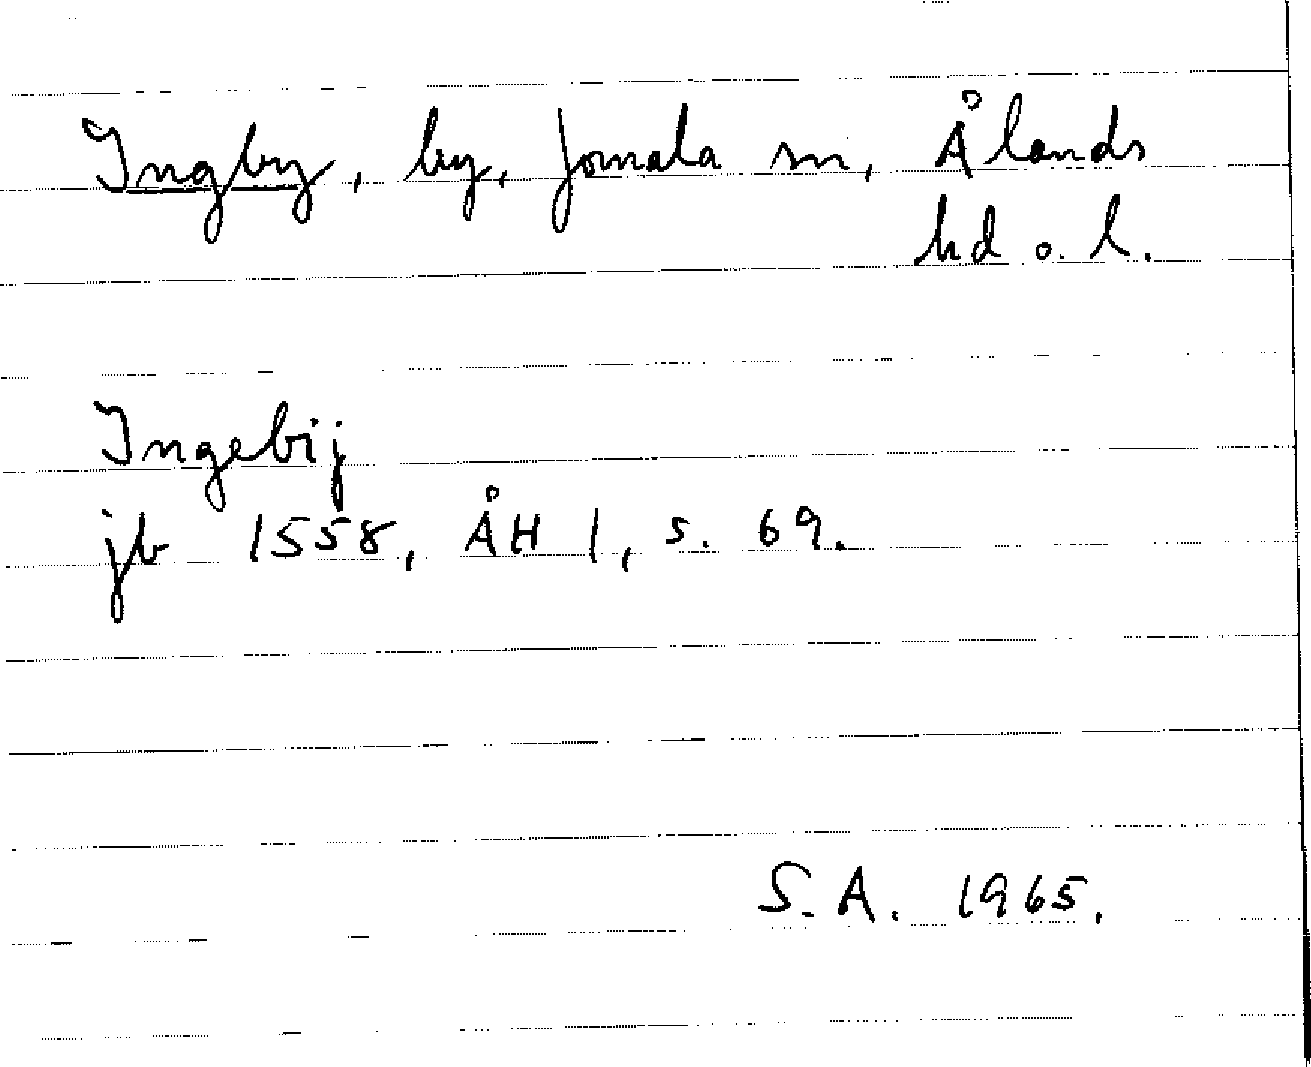 Ingby, by, Jomala sn, Ålands
hd o. l.
Ingebij
jb 1558, ÅH 1, s. 69.
S.A. 1965.